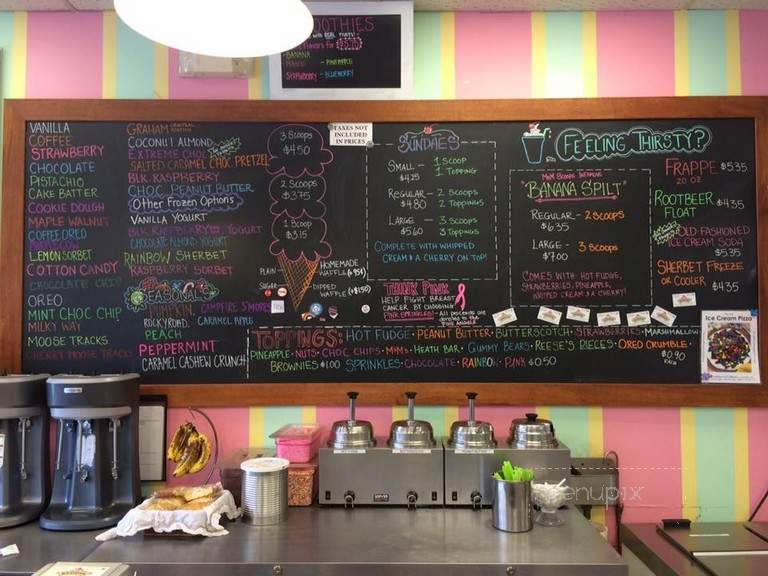 SMOOTHIES
BANANA
PINEAPPLE
STRAWBERRY - BLUEBERRY
VANILLA
COFFEE
STRAWBERRY
CHOCOLATE
PISTACHIO
CAKE BATTER
COOKIE DOUGH
MAPLE WALNUT
COFFEE OREO
LEMON SORBET
COTTON CANDY
CHOCOLATE CHIP
OREO
MINT CHOC CHIP
MILKY WAY
MOOSE TRACKS
CHERRY MOOSE TRACKS
GRAHAM CENTRAL STATION
COCONUT ALMOND
EXTREME CHOC
SALTED CARAMEL CHOC PRETZEL
BLK RASPBERRY
CHOC PEANUT BUTTER
Other Frozen Options
VANILLA YOGURT
BLK RASPBERRY YOGURT
CHOCOLATE ALMOND YOGURT
RAINBOW SHERBET
RASPBERRY SORBET
SEASONALS
PUMPKIN CAMPFIRE S'MORES
ROCKY ROAD CARAMEL APPLE
PEACH
PEPPERMINT
CARAMEL CASHEW CRUNCH
3 Scoops
$4.50
2 Scoops
$3.75
1 Scoop
$3.15
PLAIN
SUGAR
HOMEMADE
WAFFLE (+95¢)
DIPPED
WAFFLE (+$1.50)
TAXES NOT
INCLUDED
IN PRICES
SUNDAES
SMALL - 1 SCOOP
$4.25 1 TOPPING
REGULAR - 2 SCOOPS
$4.80 2 TOPPINGS
LARGE - 3 SCOOPS
$5.60 3 TOPPINGS
COMPLETE WITH WHIPPED
CREAM & A CHERRY ON TOP!
THINK PINK
HELP FIGHT BREAST
CANCER BY CHOOSING
PINK SPRINKLES!
FEELING THIRSTY?
BANANA SPLIT
REGULAR - 2 SCOOPS
$6.35
LARGE - 3 SCOOPS
$7.00
COMES WITH HOT FUDGE,
STRAWBERRIES, PINEAPPLE,
WHIPPED CREAM & A CHERRY!
FRAPPE $5.35
20 OZ
ROOTBEER
FLOAT $4.35
OLD-FASHIONED
ICE CREAM SODA
$5.35
SHERBET FREEZE
OR COOLER
$4.35
Ice Cream Pizza
TOPPINGS: HOT FUDGE · PEANUT BUTTER · BUTTERSCOTCH · STRAWBERRIES · MARSHMALLOW
PINEAPPLE · NUTS · CHOC CHIPS · M&Ms · HEATH BAR · GUMMY BEARS · REESE'S PIECES · OREO CRUMBLE · $0.90 EACH
BROWNIES $1.00 SPRINKLES · CHOCOLATE · RAINBOW · PINK $0.50
menupix